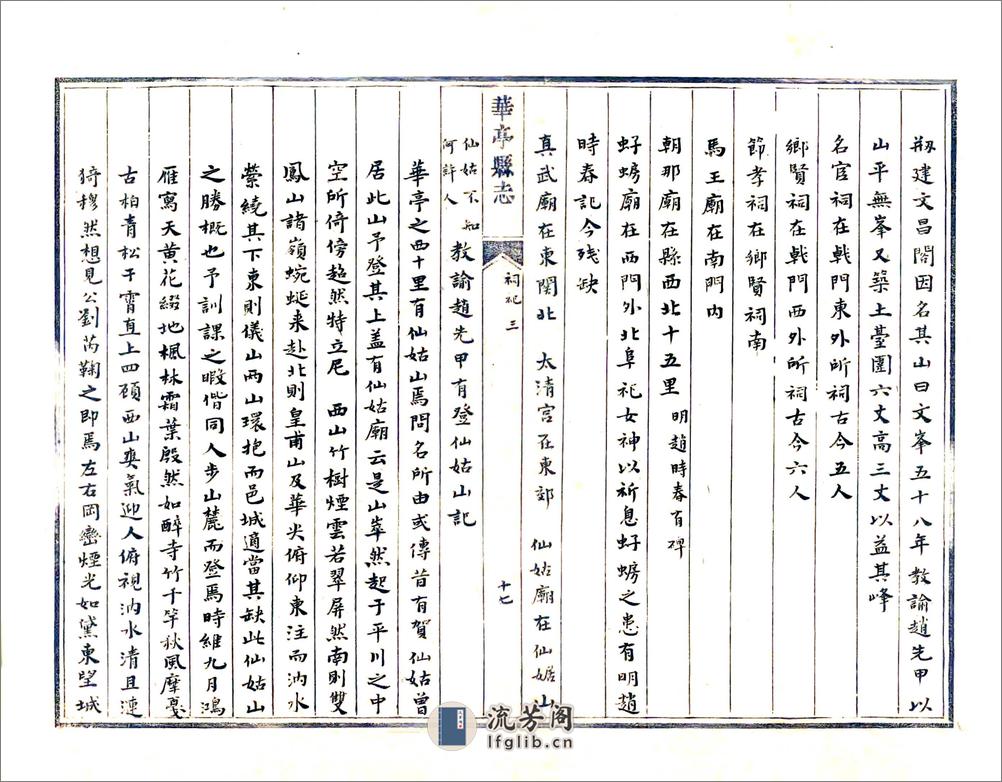 剏建文昌閣因名其山曰文峯五十八年教諭趙先甲以
山平無峯又築土臺圍六丈高三丈以益其峰
名宦祠在戟門東外所祠古今五人
鄉賢祠在戟門西外所祠古今六人
節孝祠在鄉賢祠南
馬王廟在南門內
朝那廟在縣西北十五里 明趙時春有碑
虸蝣廟在西門外北阜祀女神以祈息虸蝣之患有明趙
時春記今殘缺
真武廟在東関北 太清宮在東郊 仙姑廟在仙姑山
華亭縣志
祠祀 三
十七
仙姑不知
何許人
教諭趙先甲有登仙姑山記
華亭之西十里有仙姑山焉問名所由或傳昔有賀仙姑曾
居此山予登其上盖有仙姑廟云是山崒然起于平川之中
空所倚傍超然特立尼 西山竹樹煙雲若翠屏然南則雙
鳳山諸嶺蜿蜒来赴北則皇甫山及華尖俯仰東注而汭水
縈繞其下東則儀山两山環抱而邑城適當其缺此仙姑山
之勝概也予訓課之暇偕同人步山麓而登焉時維九月鴻
雁寫天黄花綴地楓林霜葉殷然如醉寺竹千竿秋風摩戛
古柏青松干霄直上四顾西山奭氣迎人俯視汭水清且漣
猗穆然想見公劉芮鞫之即焉左右岡巒煙光如黛東望城
流芳阁
lfglib.cn